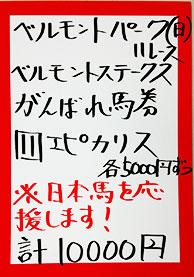 ベルモントパーク(日)
11レース
ベルモントステークス
がんばれ馬券
11 エピカリス
各5000円ずつ
※日本馬を応
援します!
計10000円